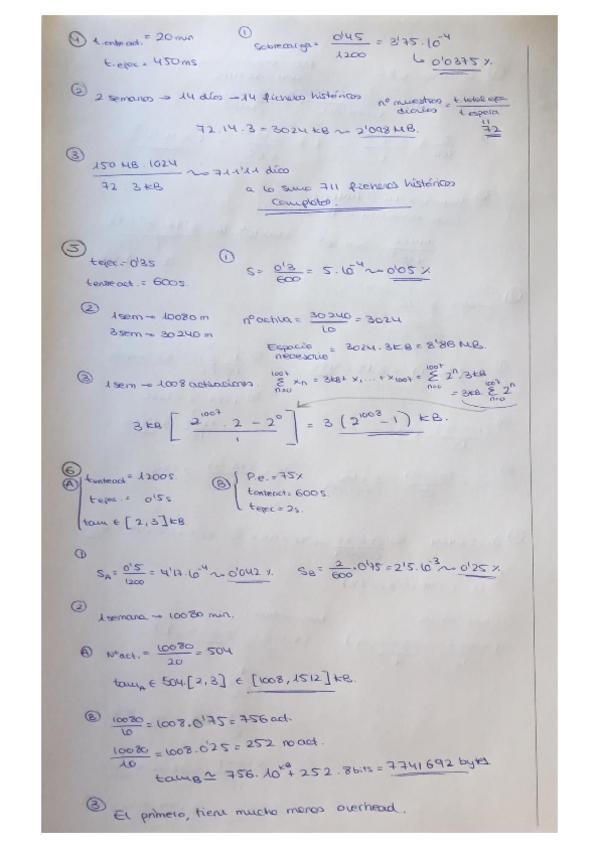 ④ t.entreact. = 20 min
① Sobrecarga = 0'45 / 1200 = 3'75·10⁻⁴
↳ 0'0375 %.
t.ejec = 450ms
② 2 semanas → 14 días → 14 ficheros históricos nº muestras diarias = t.total ejec / t espera
" 72
72·14·3 = 3024 kB ~ 2'098 MB.
③ 150 MB·1024 / 72 3 kB ~> 711'11 días
a lo sumo 711 ficheros históricos
completos.
⑤ tejec = 0'3s
① S = 0'3 / 600 = 5·10⁻⁴ ~ 0'05 %
tentreact. = 600s.
② 1 sem → 10080 m
3 sem → 30240 m
nº activa = 30240 / 10 = 3024
Espacio necesario = 3024·3kB = 8'86 MB.
③ 1 sem → 1008 activaciones. 1007 Σ n=0 xn = 3kB + x₁ ... + x1007 = 1007 Σ n=0 2ⁿ·3kB
= 3kB 1007 Σ n=0 2ⁿ
3 kB [ 2¹⁰⁰⁷ · 2 - 2⁰ / 1 ] = 3 (2¹⁰⁰⁸ - 1) kB.
⑥
Ⓐ tentreact = 1200s
tejec = 0'5s
tam ∈ [2,3] kB
Ⓑ P.e. = 75%
tentreact = 600s.
tejec = 2s.
① SA = 0'5 / 1200 = 4'17·10⁻⁴ ~ 0'042 %. SB = 2 / 600 · 0'75 = 2'5·10⁻³ ~ 0'25 %.
② 1 semana → 10080 min.
Ⓐ Nºact. = 10080 / 20 = 504
tamA ∈ 504·[2,3] ∈ [1008, 1512] kB.
Ⓑ 10080 / 10 = 1008·0'75 = 756 act.
10080 / 10 = 1008·0'25 = 252 no act.
tamB ≃ 756·10 kB + 252·8bits = 7741692 bytes
③ El primero, tiene mucho menos overhead.